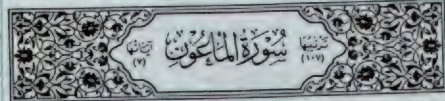 ترتيبها (١٠٧) سُورَةُ المَاعُونِ آيَاتُهَا (٧)